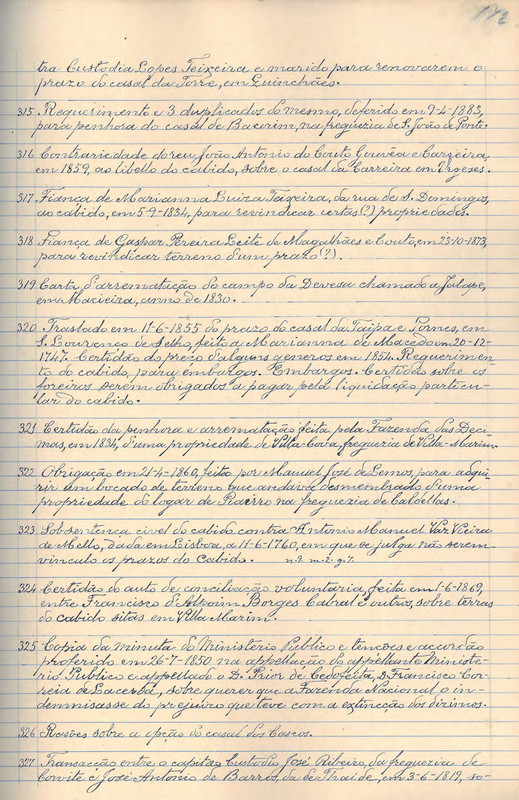 tra Custodia Lopes Teixeira e marido para renovarem o
prazo do casal da Torre, em Guinchães.
315 Requerimento e 3 duplicados do mesmo, deferido em 9-4-1883,
para penhora do casal de Bacorim, na freguezia de S. João de Ponte.
316 Contrariedade do reu João Antonio do Couto Gouvêa e Carreira,
em 1859, ao libello do cabido, sobre o casal da Carreira em Urgeses.
317 Fiança de Marianna Luiza Teixeira, da rua de S. Domingos,
ao cabido, em 5-9-1834, para revindicar certas (?) propriedades.
318 Fiança de Gaspar Pereira Leite de Magalhães e Couto, em 23-10-1873,
para revindicar terreno d'um prazo (?).
319 Carta d'arrematação do campo da Devesa chamado a
em Macieira, anno de 1830.
320 Traslado em 11-6-1855 do prazo do casal da Taipa e Fornes, em
S. Lourenço de Selho, feito a Marianna de Macedo em 20-12-
1747. Certidão do preço d'alguns generos em 1854. Requerimen-
to do cabido, para embargos. Embargos. Certidão sobre os
foreiros serem obrigados a pagar pela liquidação particu-
lar do cabido.
321 Certidão da penhora e arrematação feita pela Fazenda das Deci-
mas, em 1834, d'uma propriedade de Villa-Cova, freguezia de Villa-Marim.
322 Obrigação em 21-4-1860, feita por Manuel José de Lemos, para adqui-
rir um bocado de terreno que andava desmembrado d'uma
propriedade do logar de na freguezia de Caldellas.
323 Sobsentença civel do cabido contra Antonio Manuel Vaz Vieira
de Mello, dada em Lisboa, a 11-6-1760, em que se julga não serem
vinculo os prazos do Cabido.
324 Certidão do auto de conciliação voluntaria, feita em 1-6-1869,
entre Francisco d'Alpoim Borges Cabral e outros, sobre terras
do cabido sitas em Villa Marim.
325 Copia da minuta do Ministerio Publico e tenções e acordão
proferido em 26-7-1850 na appellação do appellante Ministe-
rio Publico e appellado o D. Prior de Cedofeita, D. Francisco Cor-
reia de Lacerda, sobre querer que a Fazenda Nacional o in-
demnisasse do prejuizo que teve com a extincção dos dizimos.
326 Rasões sobre a opção do casal dos Cascos.
327 Transacção entre o capitão Custodio José Ribeiro, da freguezia de
Corvite e José Antonio de Barros, da de Thaide, em 3-6-1819, so-